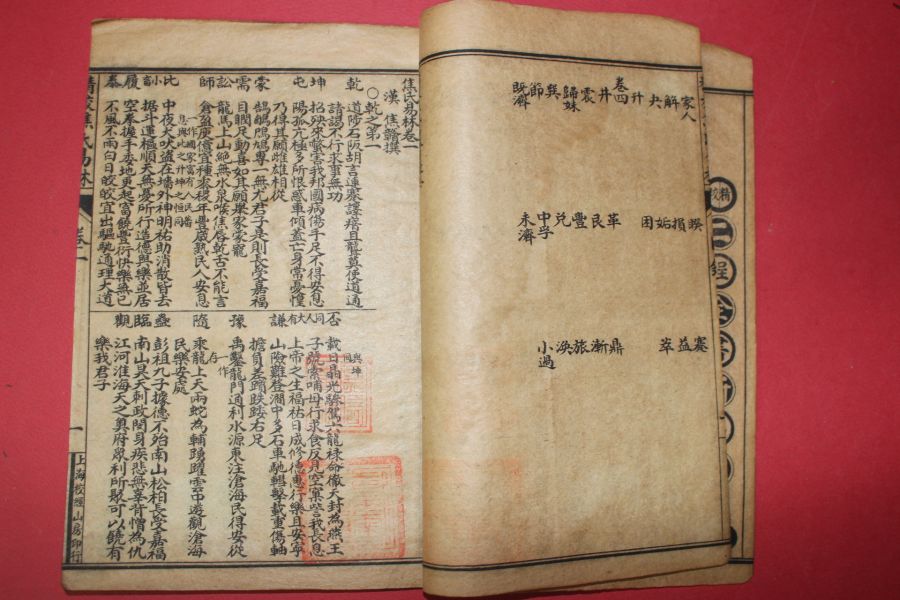 家人 睽 蹇
解 損 益
夬 姤 萃
升 困
卷四
井 革 鼎
震 艮 漸
歸妹 豐 旅
巽 兌 渙
節 中孚 小過
既濟 未濟
焦氏易林卷一
漢 焦贛撰
○乾之第一
乾 道陟石阪胡言連蹇譯瘖且聾莫使道通
請謁不行求事無功
坤 招殃來螫害我邦國病傷手足不得安息
屯 陽孤亢極多所恨惑車傾蓋亡身常憂惶
乃得其願雌雄相從
蒙 鵠鵴鳲鳩專一無尤君子是則長受嘉福
需 目瞤足動喜如其願舉家蒙寵
訟 龍馬上山絕無水泉喉焦唇乾舌不能言
師 倉盈庾億宜種黍稷年豐歲熟民人安息
一作國家富有人民蕃
息與比之升坤之恒同
比 中夜犬吠盜在墻外神明祐助消散皆去
小畜 據斗運樞順天無憂所行造德與樂並居
履 空拳握手委地更起富饒豐衍快樂無已
泰 不風不雨白日皎皎宜出驅馳通理大道
與坤同
否 載日晶光驂駕六龍祿命徹天封為燕王
同人 子號索哺母行求食反見空巢訾我長息
大有 上帝之生福祐日成修德惠行樂且安寧
謙 山險難登澗中多石車馳轊擊載重傷軸
擔負差躓跌踒右足
豫 禹鑿龍門通利水源東注滄海民得安從
一作存
隨 乘龍上天兩蛇為輔踴躍雲中遊觀滄海
民樂安處
蠱 彭祖九子據德不殆南山松柏長受嘉福
臨 南山昊天刺政閔身疾悲無辜背憎為仇
觀 江河淮海天之奧府眾利所聚可以饒有
樂我君子
精校焦氏易林 卷一 一 上海校經山房印行